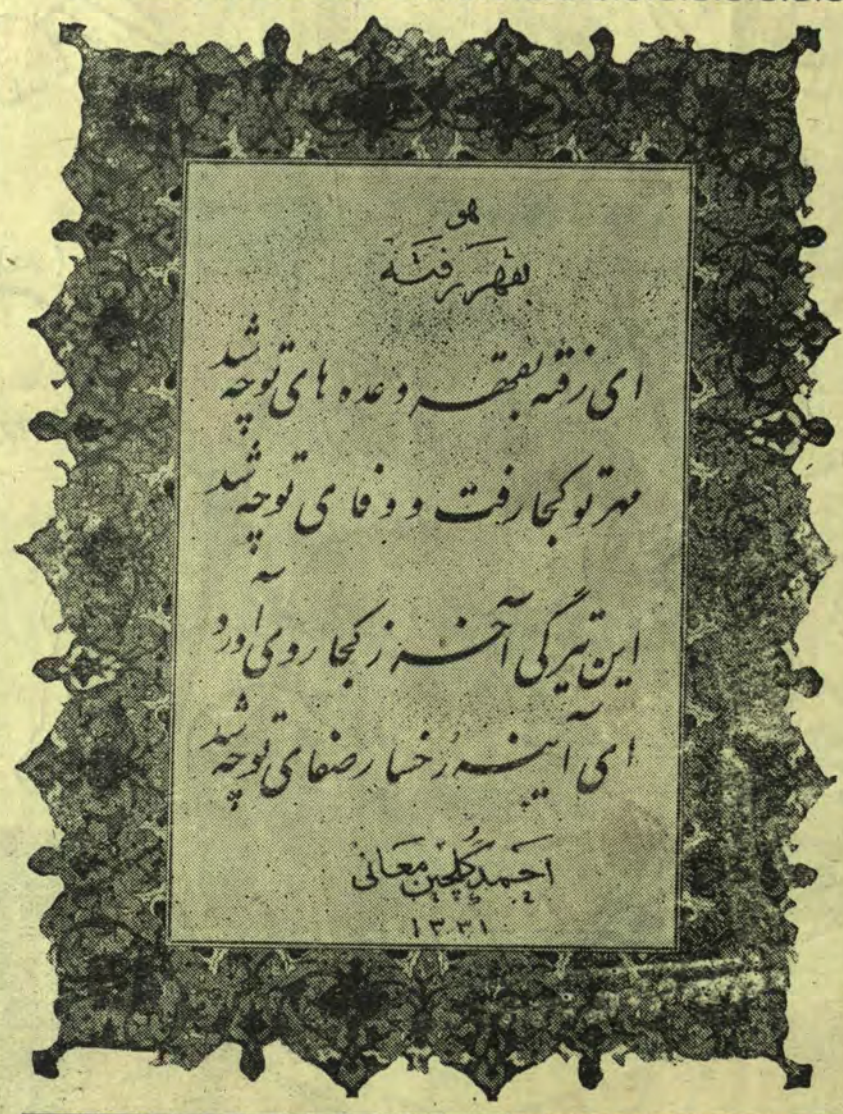 هو
بقهر رفته
ای رفته بقهر وعده های تو چه شد
مهر تو کجا رفت و وفای تو چه شد
این تیرگی آخر ز کجا روی آورد
ای آینه رخسار صفای تو چه شد
احمد گلچین معانی
۱۳۳۱